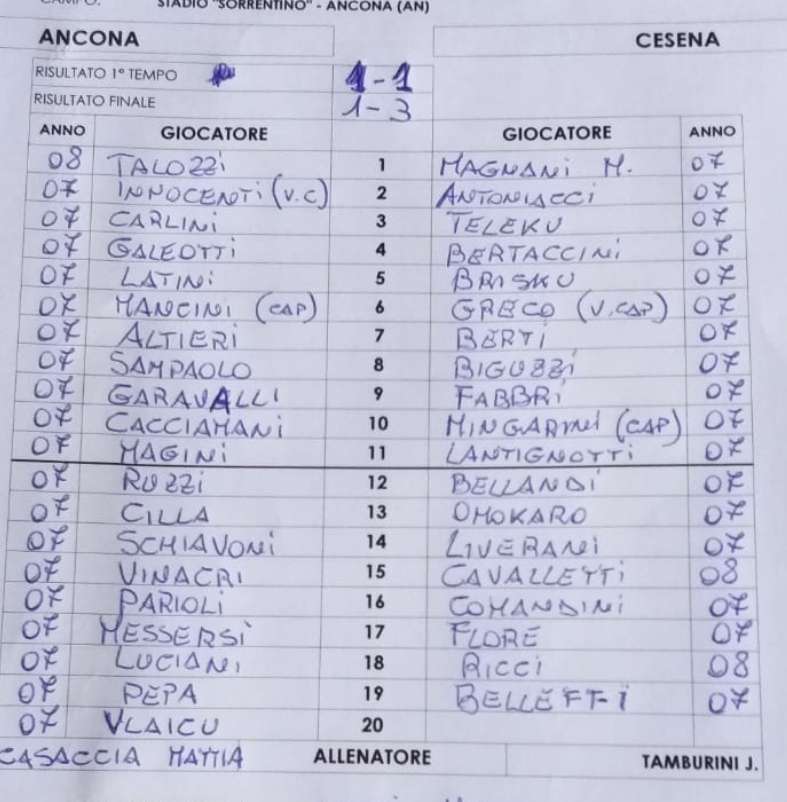 STADIO "SORRENTINO" - ANCONA (AN)
ANCONA CESENA
RISULTATO 1° TEMPO 1-1
RISULTATO FINALE 1-3
ANNO GIOCATORE GIOCATORE ANNO
08 TALOZZI 1 MAGNANI M. 07
07 INNOCENTI (V.C) 2 ANTONIACCI 07
07 CARLINI 3 TELEKU 07
07 GALEOTTI 4 BERTACCINI 07
07 LATINI 5 BRISKU 07
07 MANCINI (CAP) 6 GRECO (V.CAP) 07
07 ALTIERI 7 BERTI 07
07 SAMPAOLO 8 BIGUZZI 07
07 GARAVALLI 9 FABBRI 07
07 CACCIAMANI 10 MINGARINI (CAP) 07
07 MAGINI 11 LANTIGNOTTI 07
07 RUZZI 12 BELLANDI 07
07 CILLA 13 OMOKARO 07
07 SCHIAVONI 14 LIVERANI 07
07 VINACRI 15 CAVALLETTI 08
07 PARIOLI 16 COMANDINI 07
07 MESSERSI 17 FLORE 07
07 LUCIANI 18 RICCI 08
07 PEPA 19 BELLETTI 07
07 VLAICU 20
CASACCIA MATTIA ALLENATORE TAMBURINI J.